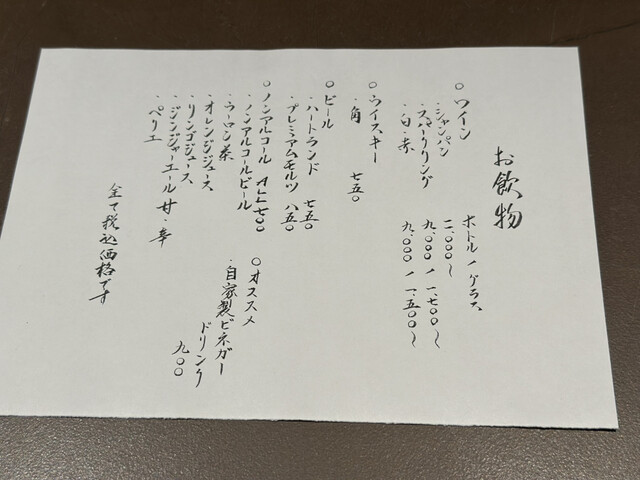 お飲物
○ワイン ボトル/グラス
・シャンパン 一二.〇〇〇〜
・スパークリング 九.〇〇〇/一.七〇〇〜
・白・赤 九.〇〇〇/一.五〇〇〜
○ウイスキー
・角 七五〇
○ビール
・ハートランド 七五〇
・プレミアムモルツ 八五〇
○ノンアルコール ALL七〇〇
・ノンアルコールビール
・ウーロン茶
・オレンジジュース
・リンゴジュース
・ジンジャーエール 甘・辛
・ペリエ
○オススメ
・自家製ビネガー
ドリンク
九〇〇
全て税込価格です